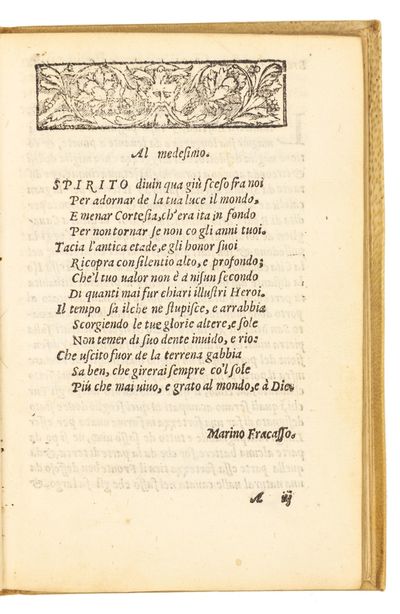 Al medesimo.
SPIRITO diuin qua giù sceso fra noi
Per adornar de la tua luce il mondo,
E menar Cortesia, ch'era ita in fondo
Per non tornar se non co gli anni tuoi.
Tacia l'antica etade, e gli honor suoi
Ricopra con silentio alto, e profondo;
Che'l tuo ualor non è à nisun secondo
Di quanti mai fur chiari illustri Heroi.
Il tempo sa ilche ne stupisce, e arrabbia
Scorgiendo le tue glorie altere, e sole
Non temer di suo dente inuido, e rio:
Che uscito fuor de la terrena gabbia
Sa ben, che girerai sempre co'l sole
Più che mai uiuo, e grato al mondo, e à Dio.
Marino Fracasso.
A iij